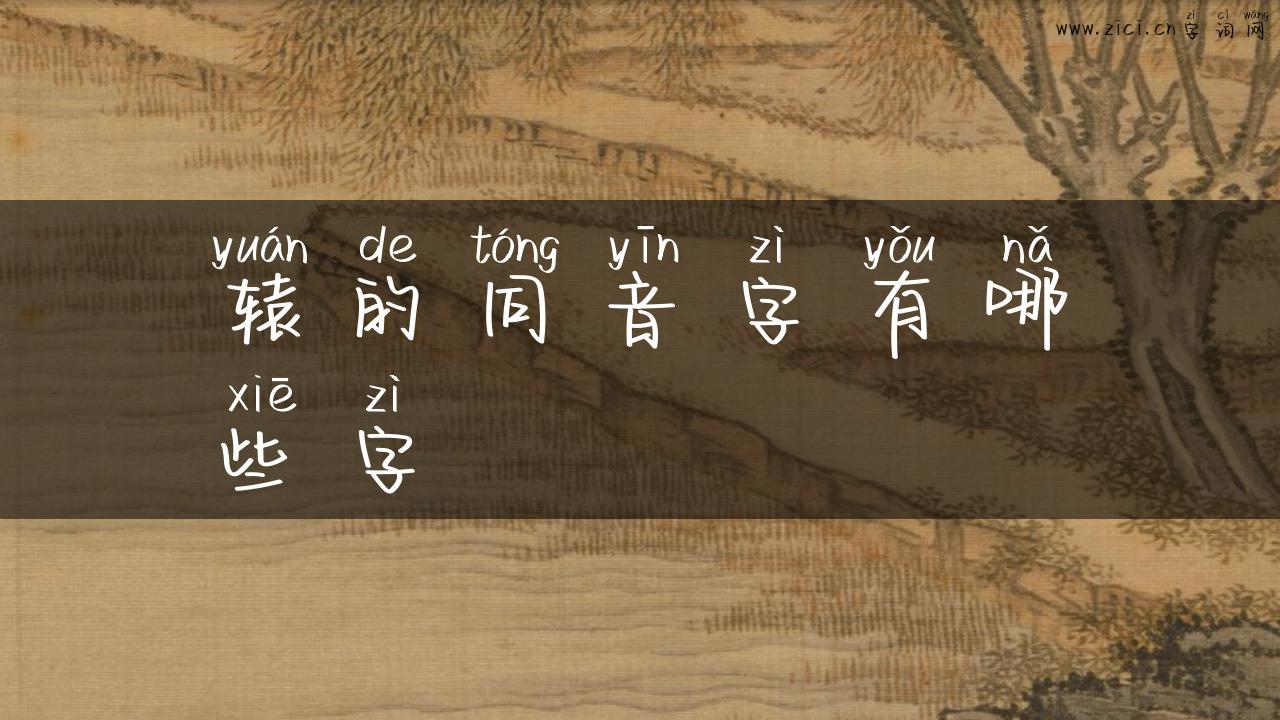 zì cí wǎng
www.zici.cn字词网
yuán de tóng yīn zì yǒu nǎ
辕的同音字有哪
xiē zì
些字